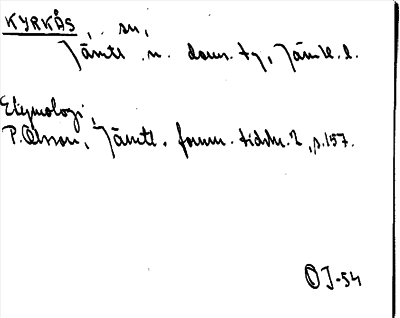 KYRKÅS, sn,
Jämtl. n. doms. tg, Jämtl. l.
Etymologi,
P. Olsson, Jämtl. fornm. tidskr. 2, s. 157.
OJ-54